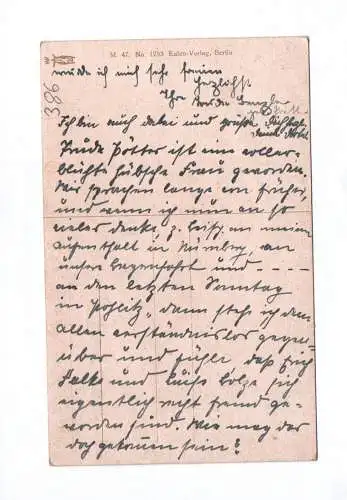 M. 47. No. 1253 Kunst-Verlag, Berlin
würde ich mich sehr freuen
Herzlichst
Ihre
386
Ich bin auch dabei und grüße
Trude Pötter ist eine voller-
blühte hübsche Frau geworden.
Wir sprachen lange von früher,
und wenn ich nun an so
vieles denke, z. beisp. an meinen
Aufenthalt in Nürnberg, an
unsere Wagenfahrt und - - - -
an den letzten Sonntag
in Poßlitz, dann steh ich dem
allen verständnislos gegen-
über und fühle, daß sich
Falke und Luise Bolze sich
eigentlich nicht fremd ge-
worden sind. Wie mag das
doch gekommen sein?